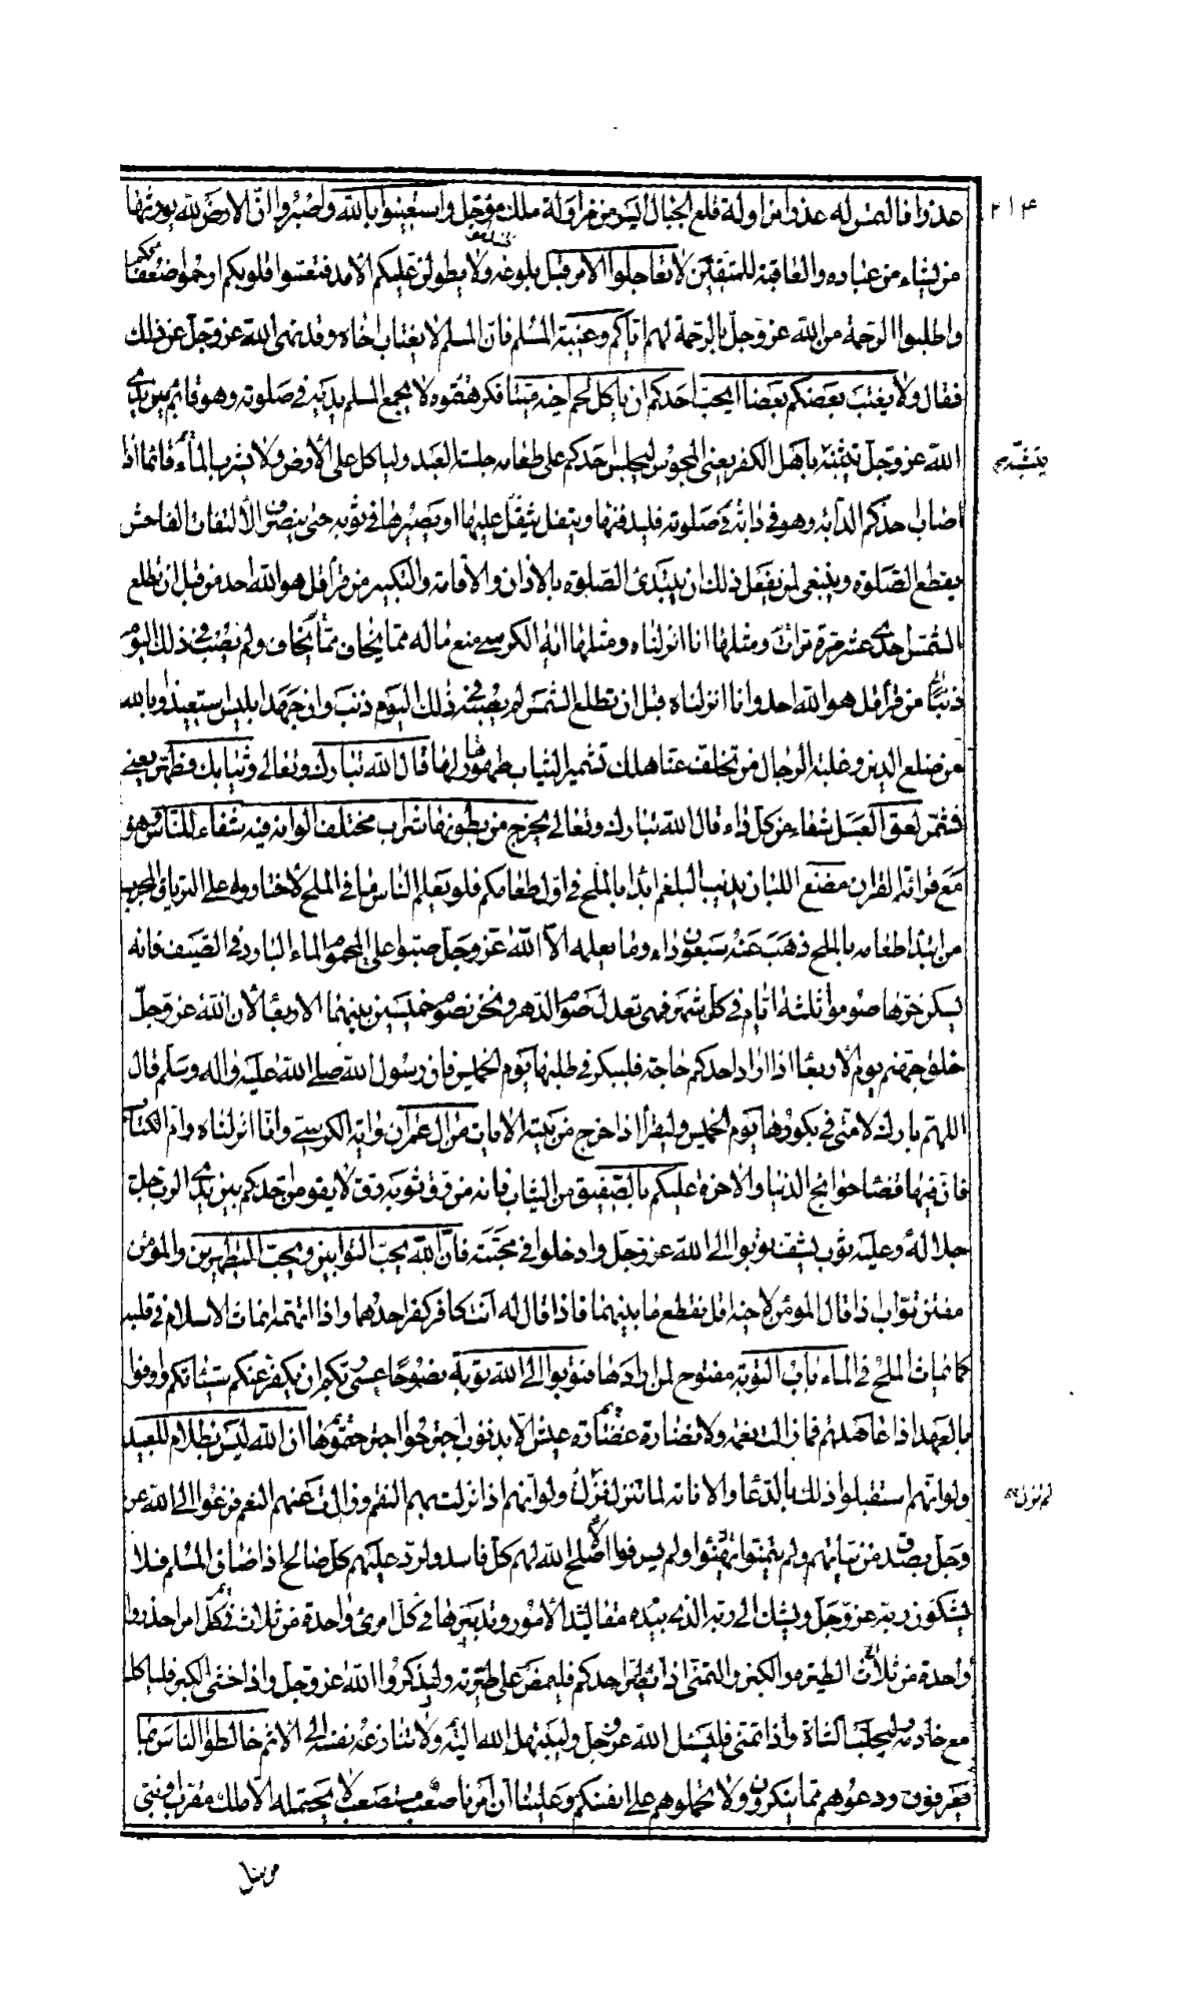 ۲۱۴
عذرا فالتمس له عذرا مزاولة قلع الجبال ايسر من مزاولة ملك مؤجل واستعينوا بالله واصبروا ان الارض لله يورثها
من يشاء من عباده والعاقبة للمتقين لا تعاجلوا الامر قبل بلوغه فتندموا ولا يطولن عليكم الامد فتقسوا قلوبكم ارحموا ضعفائكم
واطلبوا الرحمة من الله عز وجل بالرحمة لهم اياكم وغيبة المسلم فان المسلم لا يغتاب اخاه وقد نهى الله عز وجل عن ذلك
فقال ولا يغتب بعضكم بعضا ايحب احدكم ان ياكل لحم اخيه ميتا فكرهتموه لا يجمع المسلم يديه في صلوته وهو قائم بين يدي
الله عز وجل يتشبه باهل الكفر يعنى المجوس ليجلس احدكم على طعامه جلسة العبد ولياكل على الأرض ولا يشرب الماء قائما اذا
يتشبّه
اصاب احدكم الدابة وهو في صلوته فليدفنها ويتفل عليها او يصيرها في ثوبه حتى ينصرف الألتفات الفاحش
يقطع الصلوة وينبغى لمن يفعل ذلك ان يبتدئ الصلوة بالاذان والاقامة والتكبير من قرأ قل هو الله احد من قبل ان تطلع
الشمس احدى عشر مرة ومثلها انا انزلناه ومثلها اية الكرسي منع ماله مما يخاف ولم يصب في ذلك اليوم
ذنبا من قرأ قل هو الله احد وانا انزلناه قبل ان تطلع الشمس لم يصبه في ذلك اليوم ذنب وان جهد ابليس استعيذوا بالله
من ضلع الدين وغلبة الرجال من تخلف عنا هلك تشمير الثياب طهور لها قال الله تبارك وتعالى وثيابك فطهر يعنى
فشمر لعق العسل شفاء من كل داء قال الله تبارك وتعالى يخرج من بطونها شراب مختلف الوانه فيه شفاء للناس وهو
مع قرائة القران مضغ اللبان يذيب البلغم ابدأ بالملح في اول طعامكم فلو يعلم الناس ما في الملح لاختاروه على الترياق المجرب
من ابتدا طعامه بالملح ذهب عنه سبعون داء وما يعلمه الا الله عز وجل صبوا على المحموم الماء البارد في الصيف فانه
يسكن حرها صوموا ثلثة ايام في كل شهر فهى تعدل صوم الدهر ونحن نصوم خميسين بينهما الاربعا لأن الله عز وجل
خلق جهنم يوم الأربعا اذا اراد احدكم حاجة فليبكر في طلبها يوم الخميس فان رسول الله صلى الله عليه واله وسلم قال
اللهم بارك لامتى في بكورها يوم الخميس وليقرأ اذا خرج من بيته الايات من ال عمران واية الكرسي وانا انزلناه وام الكتاب
فان فيها قضا حوائج الدنيا والاخرة عليكم بالصفيق من الثياب فانه من رق ثوبه رق لا يقومن احدكم بين يدي الرب جل
جلاله وعليه ثوب يشف توبوا الى الله عز وجل وادخلوا في محبته فان الله يحب التوابين ويحب المتطهرين والمؤمن
مفتن تواب اذا قال المؤمن لاخيه اف انقطع ما بينهما فاذا قال له انت كافر كفر احدهما واذا اتهمه انماث الاسلام في قلبه
كما يماث الملح في الماء باب التوبة مفتوح لمن ارادها فتوبوا الى الله توبة نصوحا عسى ربكم ان يكفر عنكم سيئاتكم واوفوا
بالعهد اذا عاهدتم فما زالت نعمة ولا نضارة عيش الا بذنوب اجترحوا ان الله ليس بظلام للعبيد
ولو انهم استقبلوا ذلك بالدعا والانابة لما تنزل ولو انهم اذا نزلت بهم النقم وزالت عنهم النعم فزعوا الى الله عز
لم تزل
وجل بصدق من نياتهم ولم يتمنوا ولم يسرفوا لاصلح الله لهم كل فاسد ولرد عليهم كل صالح اذا ضاق المسلم فلا
يشكون ربه عز وجل وليشك الى ربه الذي بيده مقاليد الأمور وتدبيرها في كل امرئ واحدة من ثلاث
واحدة من ثلاث الطيرة والكبر والتمنى اذا تطير احدكم فليمض على طيرته وليذكر الله عز وجل واذا خشى الكبر فلياكل
مع خادمه وليحلب الشاة واذا تمنى فليسئل الله عز وجل وليبتهل الله اليه ولا تنازعه نفسه الى الاثم خالطوا الناس بما
يعرفون ودعوهم مما ينكرون ولا تحملوهم على انفسكم وعلينا ان امرنا صعب مستصعب لا يحتمله الا ملك مقرب او نبى
مرسل